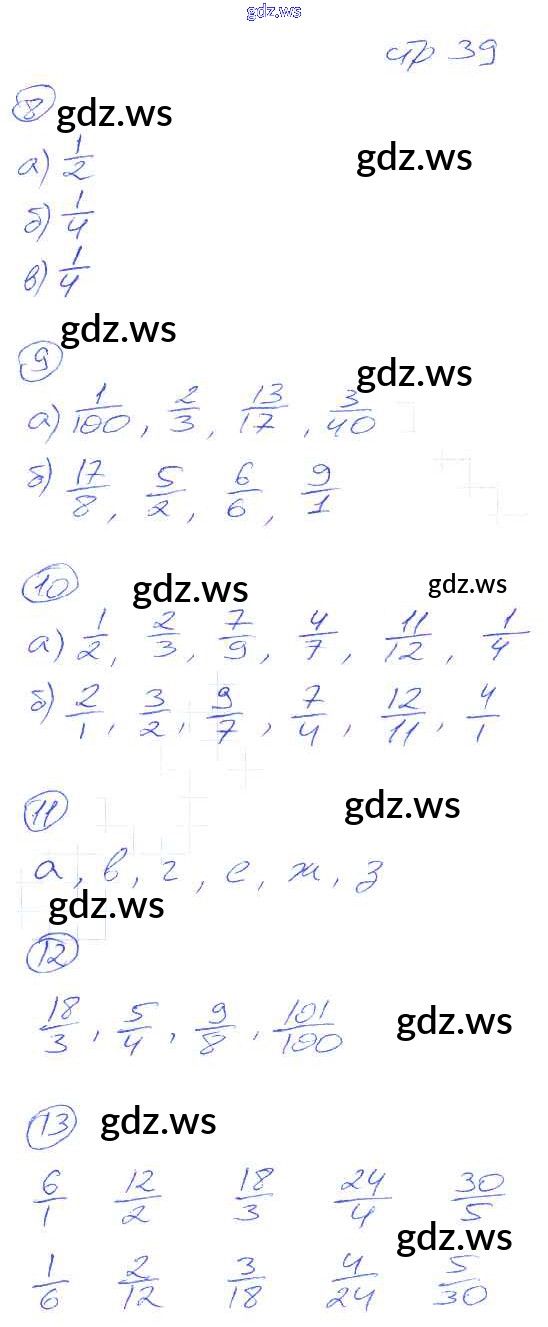 gdz.ws
стр 39
8 gdz.ws
а) 1/2
gdz.ws
б) 1/4
в) 1/4
gdz.ws
9
gdz.ws
а) 1/100, 2/3, 13/17, 3/40
б) 17/8, 5/2, 6/6, 9/1
10 gdz.ws gdz.ws
а) 1/2, 2/3, 7/9, 4/7, 11/12, 1/4
б) 2/1, 3/2, 9/7, 7/4, 12/11, 4/1
11 gdz.ws
а, в, г, е, ж, з
gdz.ws
12
18/3, 5/4, 9/8, 101/100
gdz.ws
13 gdz.ws
6/1 12/2 18/3 24/4 30/5
gdz.ws
1/6 2/12 3/18 4/24 5/30